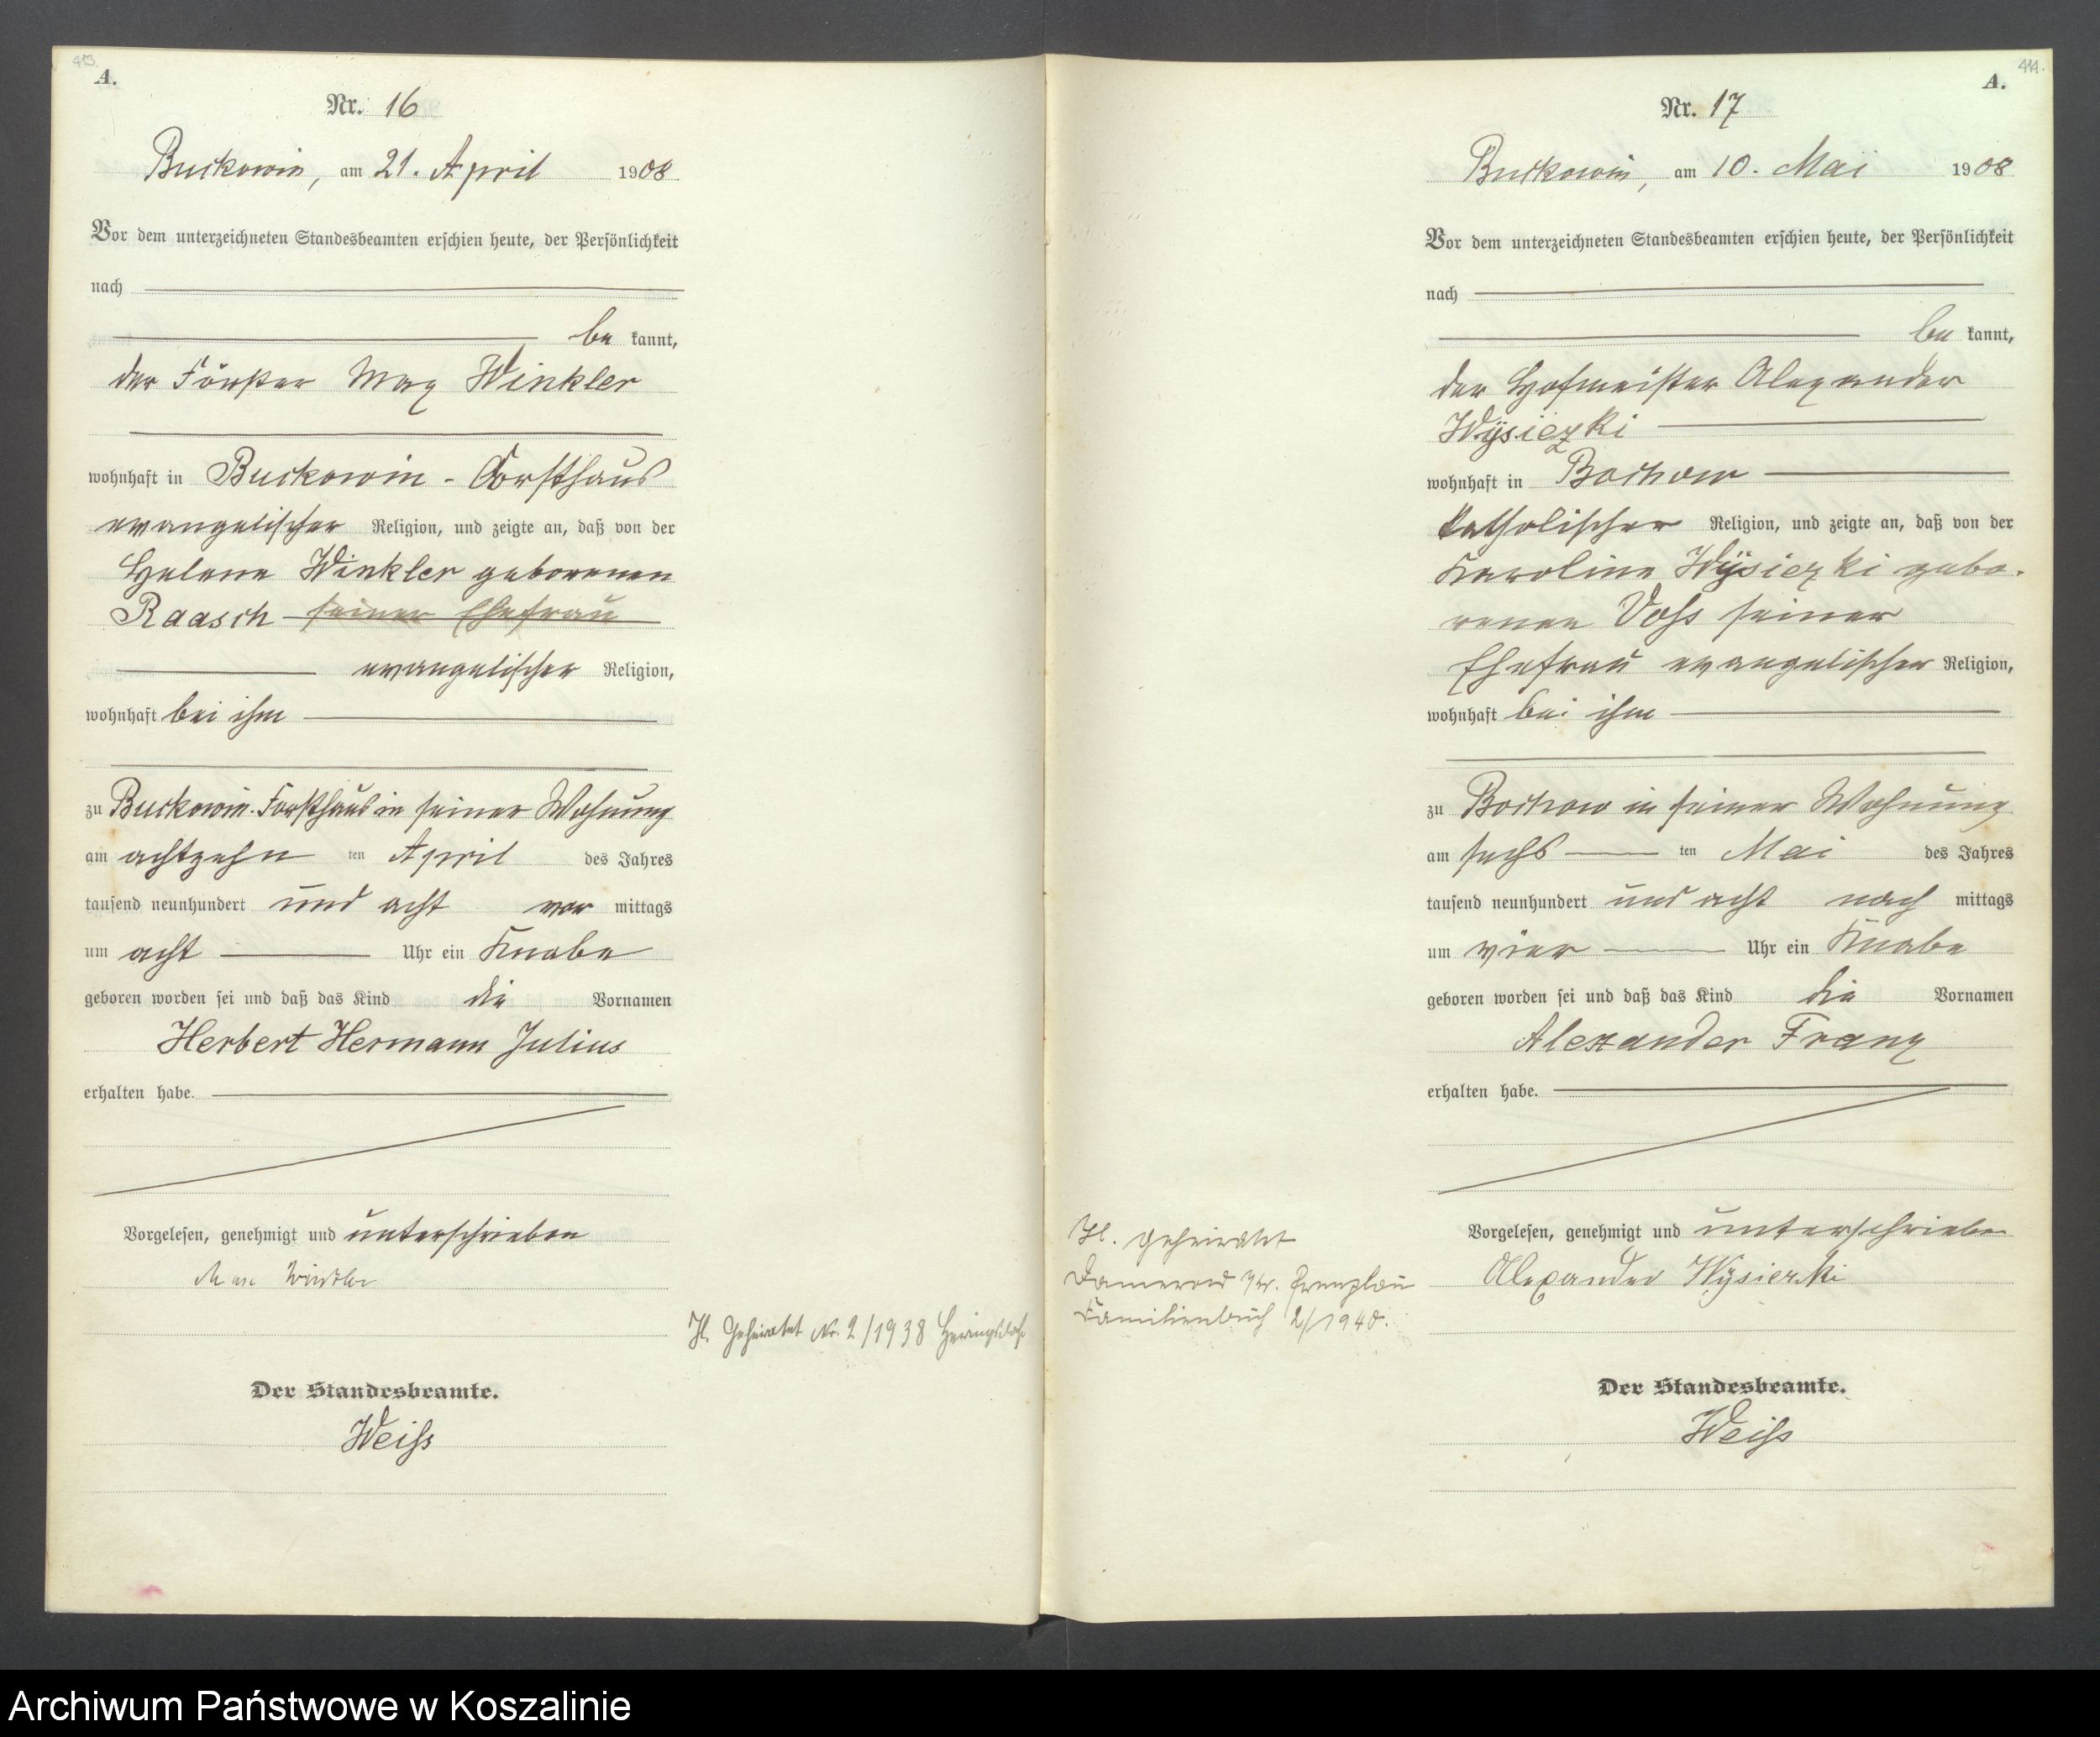 413.
A.
Nr. 16
Buckowin, am 21. April 1908
Vor dem unterzeichneten Standesbeamten erschien heute, der Persönlichkeit
nach
be kannt,
der Förster Max Winkler
wohnhaft in Buckowin - Forsthaus
evangelischer Religion, und zeigte an, daß von der
Helene Winkler geborenen
Raasch seiner Ehefrau
evangelischer Religion,
wohnhaft bei ihm
zu Buckowin-Forsthaus in seiner Wohnung
am achtzehn ten April des Jahres
tausend neunhundert und acht vor mittags
um acht Uhr ein Knabe
geboren worden sei und daß das Kind die Vornamen
Herbert Hermann Julius
erhalten habe.
Vorgelesen, genehmigt und unterschrieben
Max Winkler
Der Standesbeamte.
Weiß
Geheiratet Nr. 2/1938 Heringsdorf
414.
A.
Nr. 17
Buckowin, am 10. Mai 1908
Vor dem unterzeichneten Standesbeamten erschien heute, der Persönlichkeit
nach
be kannt,
der Hofmeister Alexander
Wysiezki
wohnhaft in Bochow
katholischer Religion, und zeigte an, daß von der
Karoline Wysiezki gebo-
renen Voß seiner
Ehefrau evangelischer Religion,
wohnhaft bei ihm
zu Bochow in seiner Wohnung
am sechs ten Mai des Jahres
tausend neunhundert und acht nach mittags
um vier Uhr ein Knabe
geboren worden sei und daß das Kind die Vornamen
Alexander Franz
erhalten habe.
Vorgelesen, genehmigt und unterschrieben
Alexander Wysiezki
Der Standesbeamte.
Weiß
geheiratet
Damerow Prenzlau
Familienbuch 2/1940.
Archiwum Państwowe w Koszalinie